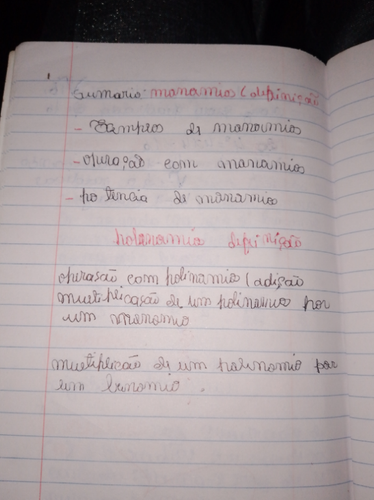 Sumario: monomios (definição
- Exmpros de monomios
- operação com monomios
- potencia de monomio
polinomio definição
operasão com polinomio (adição
multiplicasão de um polinomio por
um monomio
multiplicão de um polinomio por
um binomio.